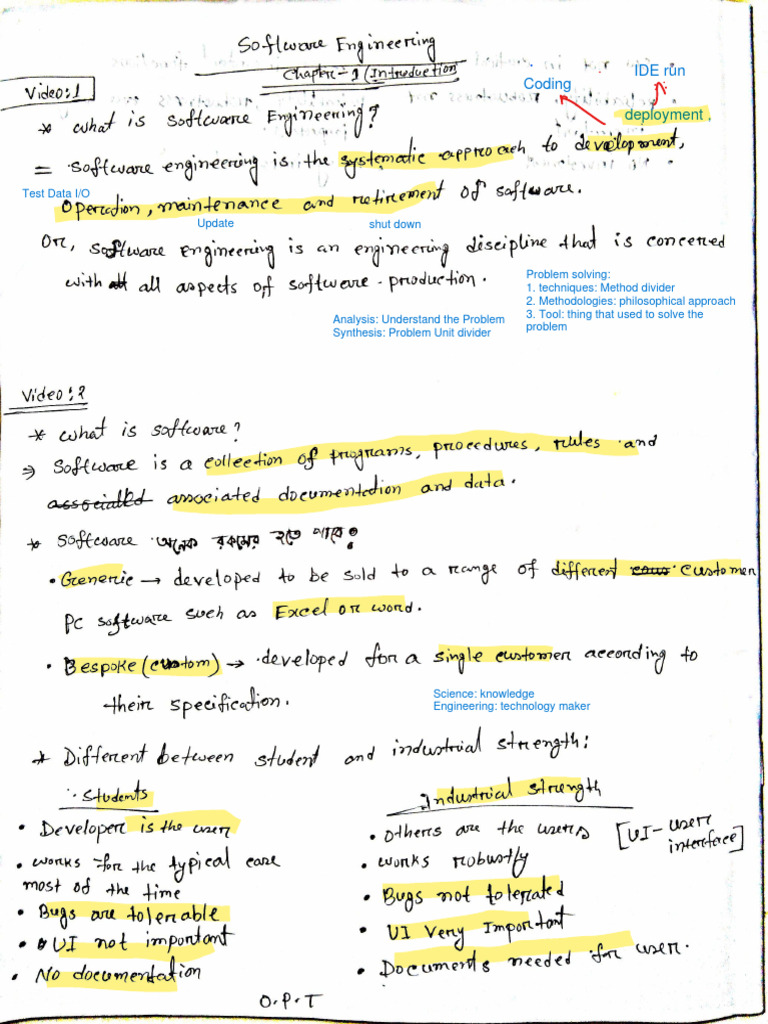 Software Engineering
Chapter-1 (Introduction)
Video:1
Coding
IDE run
* What is Software Engineering?
deployment,
= Software engineering is the systematic approach to development,
Test Data I/O
Operation, maintenance and retirement of software.
Update
shut down
Or, Software Engineering is an engineering discipline that is concerned
with all aspects of software production.
Problem solving:
1. techniques: Method divider
2. Methodologies: philosophical approach
3. Tool: thing that used to solve the
problem
Analysis: Understand the Problem
Synthesis: Problem Unit divider
Video:2
* What is software?
⇒ Software is a collection of programs, procedures, rules and
associated documentation and data.
* Software অনেক রকমের হতে পারে?
• Generic → developed to be sold to a range of different customer
PC software such as Excel or word.
• Bespoke (custom) → developed for a single customer according to
their specification.
Science: knowledge
Engineering: technology maker
* Different between student and industrial strength:
Students
• Developer is the user
• works for the typical case
most of the time
• Bugs are tolerable
• UI not important
• No documentation
Industrial strength
• Others are the users [UI - user
interface]
• works robustly
• Bugs not tolerated
• UI Very Important
• Documents needed for user.
O.P.T